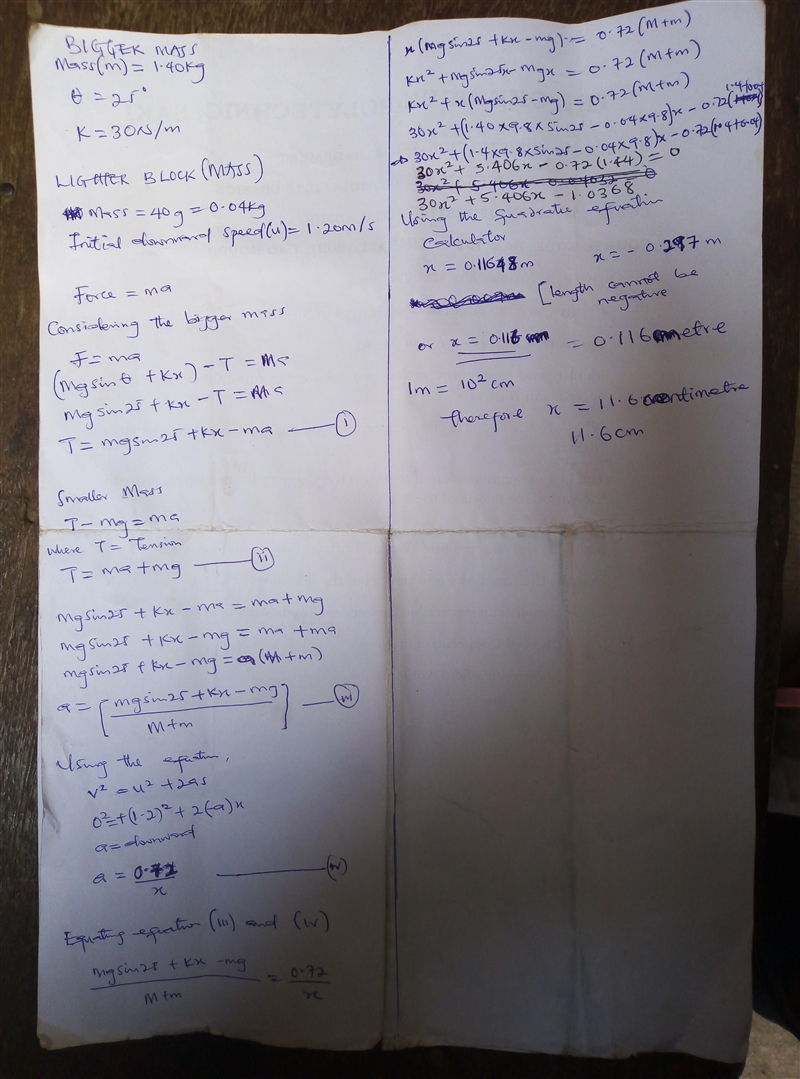 BIGGER MASS
Mass(m) = 1.40kg
θ = 25°
K = 30N/m
LIGHTER BLOCK (MASS)
Mass = 40g = 0.04kg
Initial downward speed(u) = 1.20m/s
Force = ma
Considering the bigger mass
F = ma
(Mgsinθ + Kx) - T = Ma
Mgsin25 + Kx - T = Ma
T = mgsin25 + Kx - ma — (i)
Smaller Mass
T - mg = ma
where T = Tension
T = ma + mg — (ii)
Mgsin25 + Kx - ma = ma + mg
mgsin25 + Kx - mg = ma + ma
mgsin25 + Kx - mg = a(M + m)
a = [mgsin25 + Kx - mg / M + m] — (iii)
Using the equation,
v² = u² + 2as
0² = +(1.2)² + 2(-a)x
a = downward
a = 0.72 / x — (iv)
Equating equation (iii) and (iv)
mgsin25 + Kx - mg / M + m = 0.72 / x
x(Mgsin25 + Kx - mg) = 0.72(M + m)
Kx² + Mgsin25x - mgx = 0.72(M + m)
Kx² + x(Mgsin25 - mg) = 0.72(M + m)
30x² + (1.40 x 9.8 x sin25 - 0.04 x 9.8)x - 0.72(
30x² + (1.4 x 9.8 x sin25 - 0.04 x 9.8)x - 0.72(1.4 + 0.04)
30x² + 5.406x - 0.72(1.44) = 0
30x² + 5.406x - 1.0368
Using the quadratic equation
Calculator
x = 0.11648m x = - 0.297m
[length cannot be
negative
or x = 0.116 = 0.116metre
1m = 10² cm
therefore x = 11.6 centimetre
11.6cm